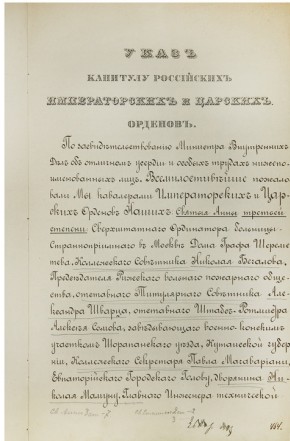 УКАЗЪ
КАПИТУЛУ РОССІЙСКИХЪ
ИМПЕРАТОРСКИХЪ И ЦАРСКИХЪ
ОРДЕНОВЪ.
По засвидѣтельствованію Министра Внутреннихъ
Дѣлъ объ отличномъ усердіи и особыхъ трудахъ нижепо-
именованныхъ лицъ, Всемилостивѣйше пожало-
вали Мы кавалерами Императорскихъ и Цар-
скихъ Орденовъ Нашихъ: Святыя Анны третьей
степени: Сверхштатнаго Ординатора больницы
Страннопріимнаго въ Москвѣ Дома Графа Шереме-
тева, Коллежскаго Совѣтника Николая
Предсѣдателя Рижскаго вольнаго пожарнаго обще-
ства, отставнаго Титулярнаго Совѣтника Але-
ксандра Шварца, отставнаго Штабсъ-Ротмистра
Алексѣя Сомова, завѣдывающаго военно-конскимъ
участкомъ Шорапанскаго уѣзда, Кутаисской губер-
ніи, Коллежскаго Секретаря Павла Магаваріани,
Евпаторійскаго Городскаго Голову, дворянина Ни-
колая Мамуну, Главнаго Инженера технической